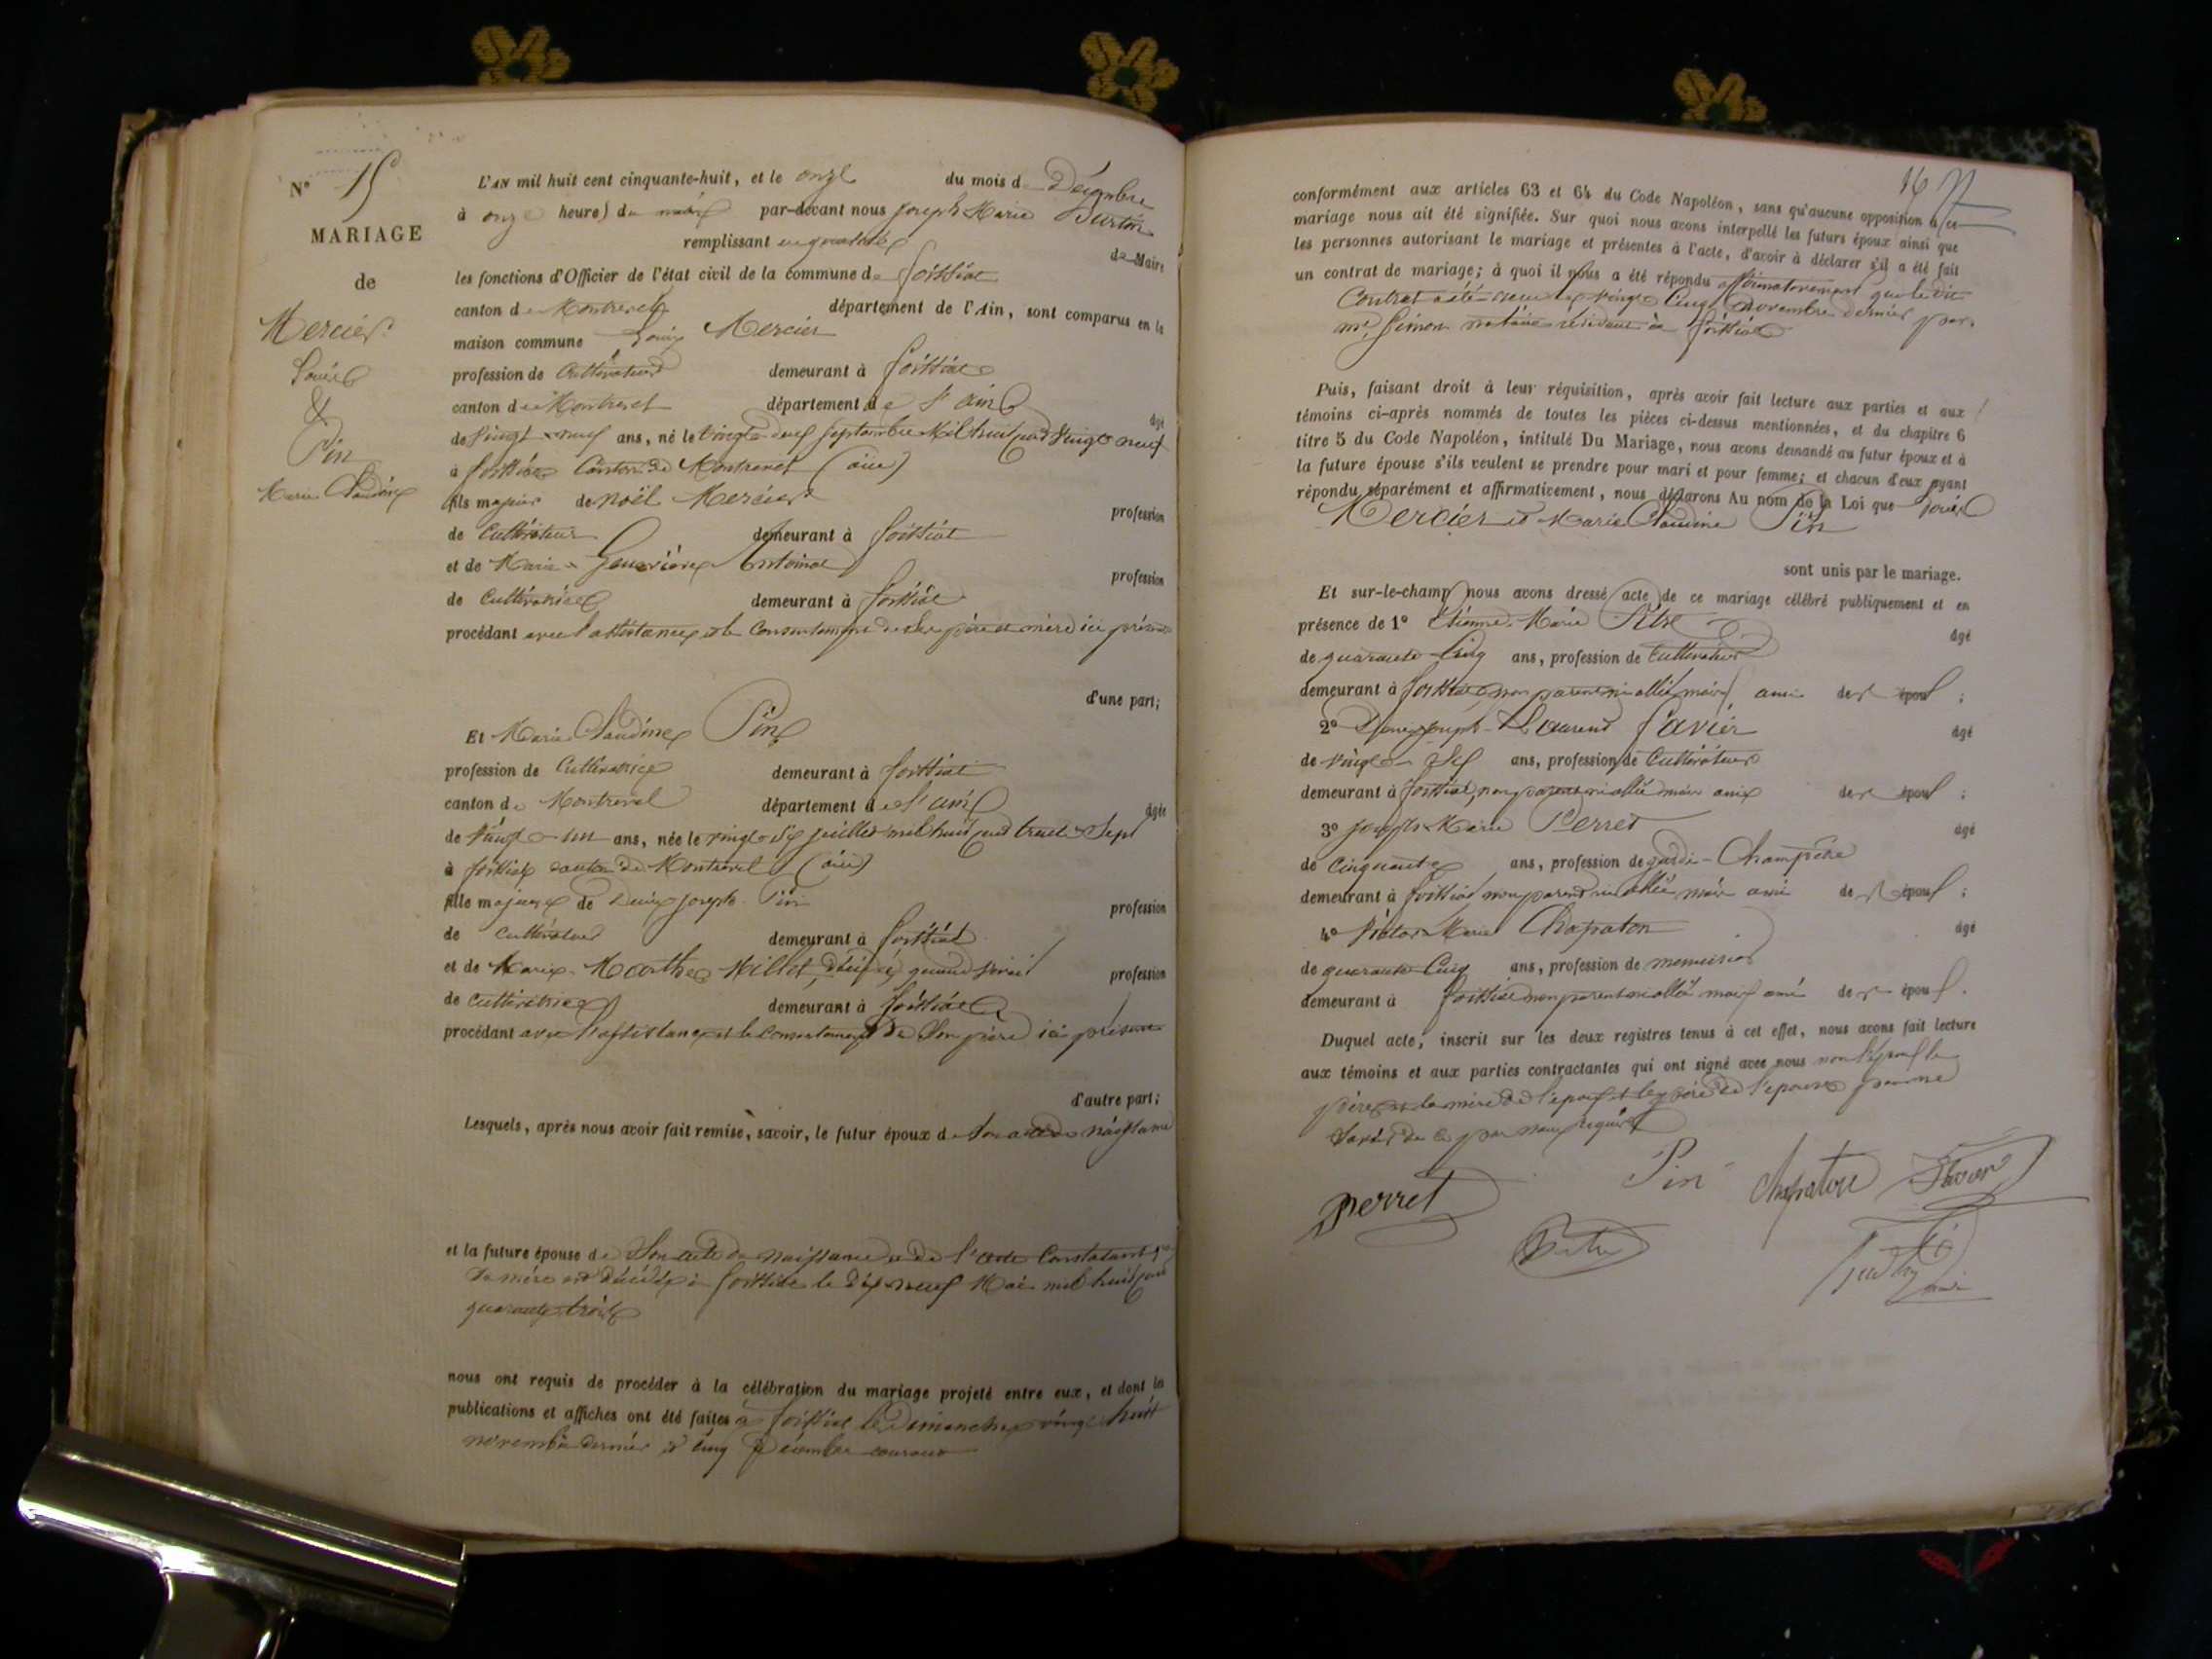 N° 15
MARIAGE
de
Mercier
Louis
&
Pin
Marie Claudine
L'AN mil huit cent cinquante-huit, et le onze du mois de Décembre
à onze heures du matin par-devant nous Joseph Marie
remplissant en qualité de Maire
les fonctions d'Officier de l'état civil de la commune de foissiat
canton de Montrevel département de l'Ain, sont comparus en la
maison commune Louis Mercier
profession de Cultivateur demeurant à foissiat
canton de Montrevel département de l'ain
âgé
de vingt neuf ans, né le vingt deux septembre mil huit cent vingt neuf
à foissiat Canton de Montrevel (ain)
fils majeur de Noël Mercier
profession
de Cultivateur demeurant à foissiat
et de Marie Antoinat
profession
de Cultivatrice demeurant à foissiat
procédant avec l'assistance et le consentement de ses père et mère ici présents
d'une part;
Et Marie Claudine Pin
profession de Cultivatrice demeurant à foissiat
canton de Montrevel département de l'ain
âgée
de vingt un ans, née le vingt six juillet mil huit cent trente sept
à foissiat canton de Montrevel (ain)
fille majeure de Denis joseph Pin
profession
de cultivateur demeurant à foissiat
et de Marie Marthe Millet, décédée, quand vivait
profession
de cultivatrice demeurant à foissiat
procédant avec l'assistance et le consentement de Son père ici présent
d'autre part;
Lesquels, après nous avoir fait remise, savoir, le futur époux de Son acte de naissance
et la future épouse de Son acte de naissance et de l'acte Constatant que
Sa mère est décédée à foissiat le dix neuf Mai mil huit cent
quarante trois
nous ont requis de procéder à la célébration du mariage projeté entre eux, et dont les
publications et affiches ont été faites à foissiat les Dimanches vingt huit
novembre dernier et cinq Décembre courant
16
conformément aux articles 63 et 64 du Code Napoléon, sans qu'aucune opposition à ce
mariage nous ait été signifiée. Sur quoi nous avons interpellé les futurs époux ainsi que
les personnes autorisant le mariage et présentes à l'acte, d'avoir à déclarer s'il a été fait
un contrat de mariage; à quoi il nous a été répondu affirmativement que le dit
Contrat a été reçu le vingt cinq novembre dernier par
me Simon notaire résidant à foissiat
Puis, faisant droit à leur réquisition, après avoir fait lecture aux parties et aux
témoins ci-après nommés de toutes les pièces ci-dessus mentionnées, et du chapitre 6
titre 5 du Code Napoléon, intitulé Du Mariage, nous avons demandé au futur époux et à
la future épouse s'ils veulent se prendre pour mari et pour femme; et chacun d'eux ayant
répondu séparément et affirmativement, nous déclarons Au nom de la Loi que Louis
Mercier et Marie Claudine Pin
sont unis par le mariage.
Et sur-le-champ nous avons dressé acte de ce mariage célébré publiquement et en
présence de 1° Etienne Marie
âgé
de quarante cinq ans, profession de Cultivateur
demeurant à foissiat, non parent ni allié mais ami des époux ;
2° joseph Laurent favier
âgé
de vingt ans, profession de Cultivateur
demeurant à foissiat, non parent ni allié mais ami des époux ;
3° joseph Marie Perret
âgé
de Cinquante ans, profession de garde-Champêtre
demeurant à foissiat non parent ni allié mais ami des époux ;
4° Victor Marie Chapraton
âgé
de quarante Cinq ans, profession de menuisier
demeurant à foissiat non parent ni allié mais ami des époux.
Duquel acte, inscrit sur les deux registres tenus à cet effet, nous avons fait lecture
aux témoins et aux parties contractantes qui ont signé avec nous non l'époux le
père et la mère de l'époux et le père de l'épouse pour ne
savoir de ce par nous requis
Perret
Pin
Chapraton
favier